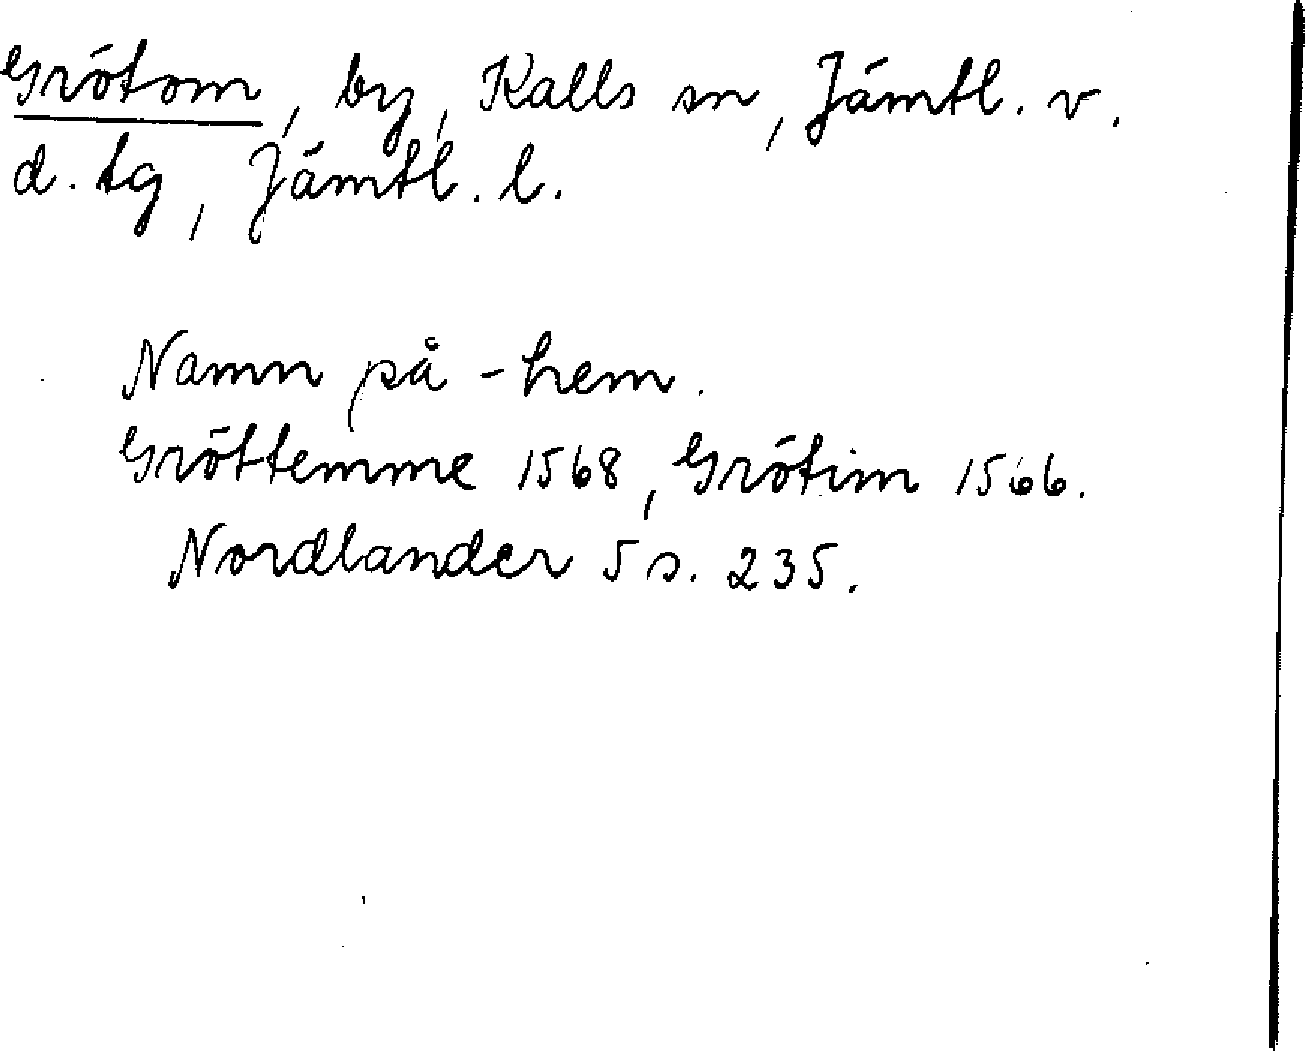 Grötom, by, Kalls sn, Jämtl. v.
d. tg, Jämtl. l.
Namn på -hem.
Gröttemme 1568, Grötim 1566.
Nordlander 5 s. 235.